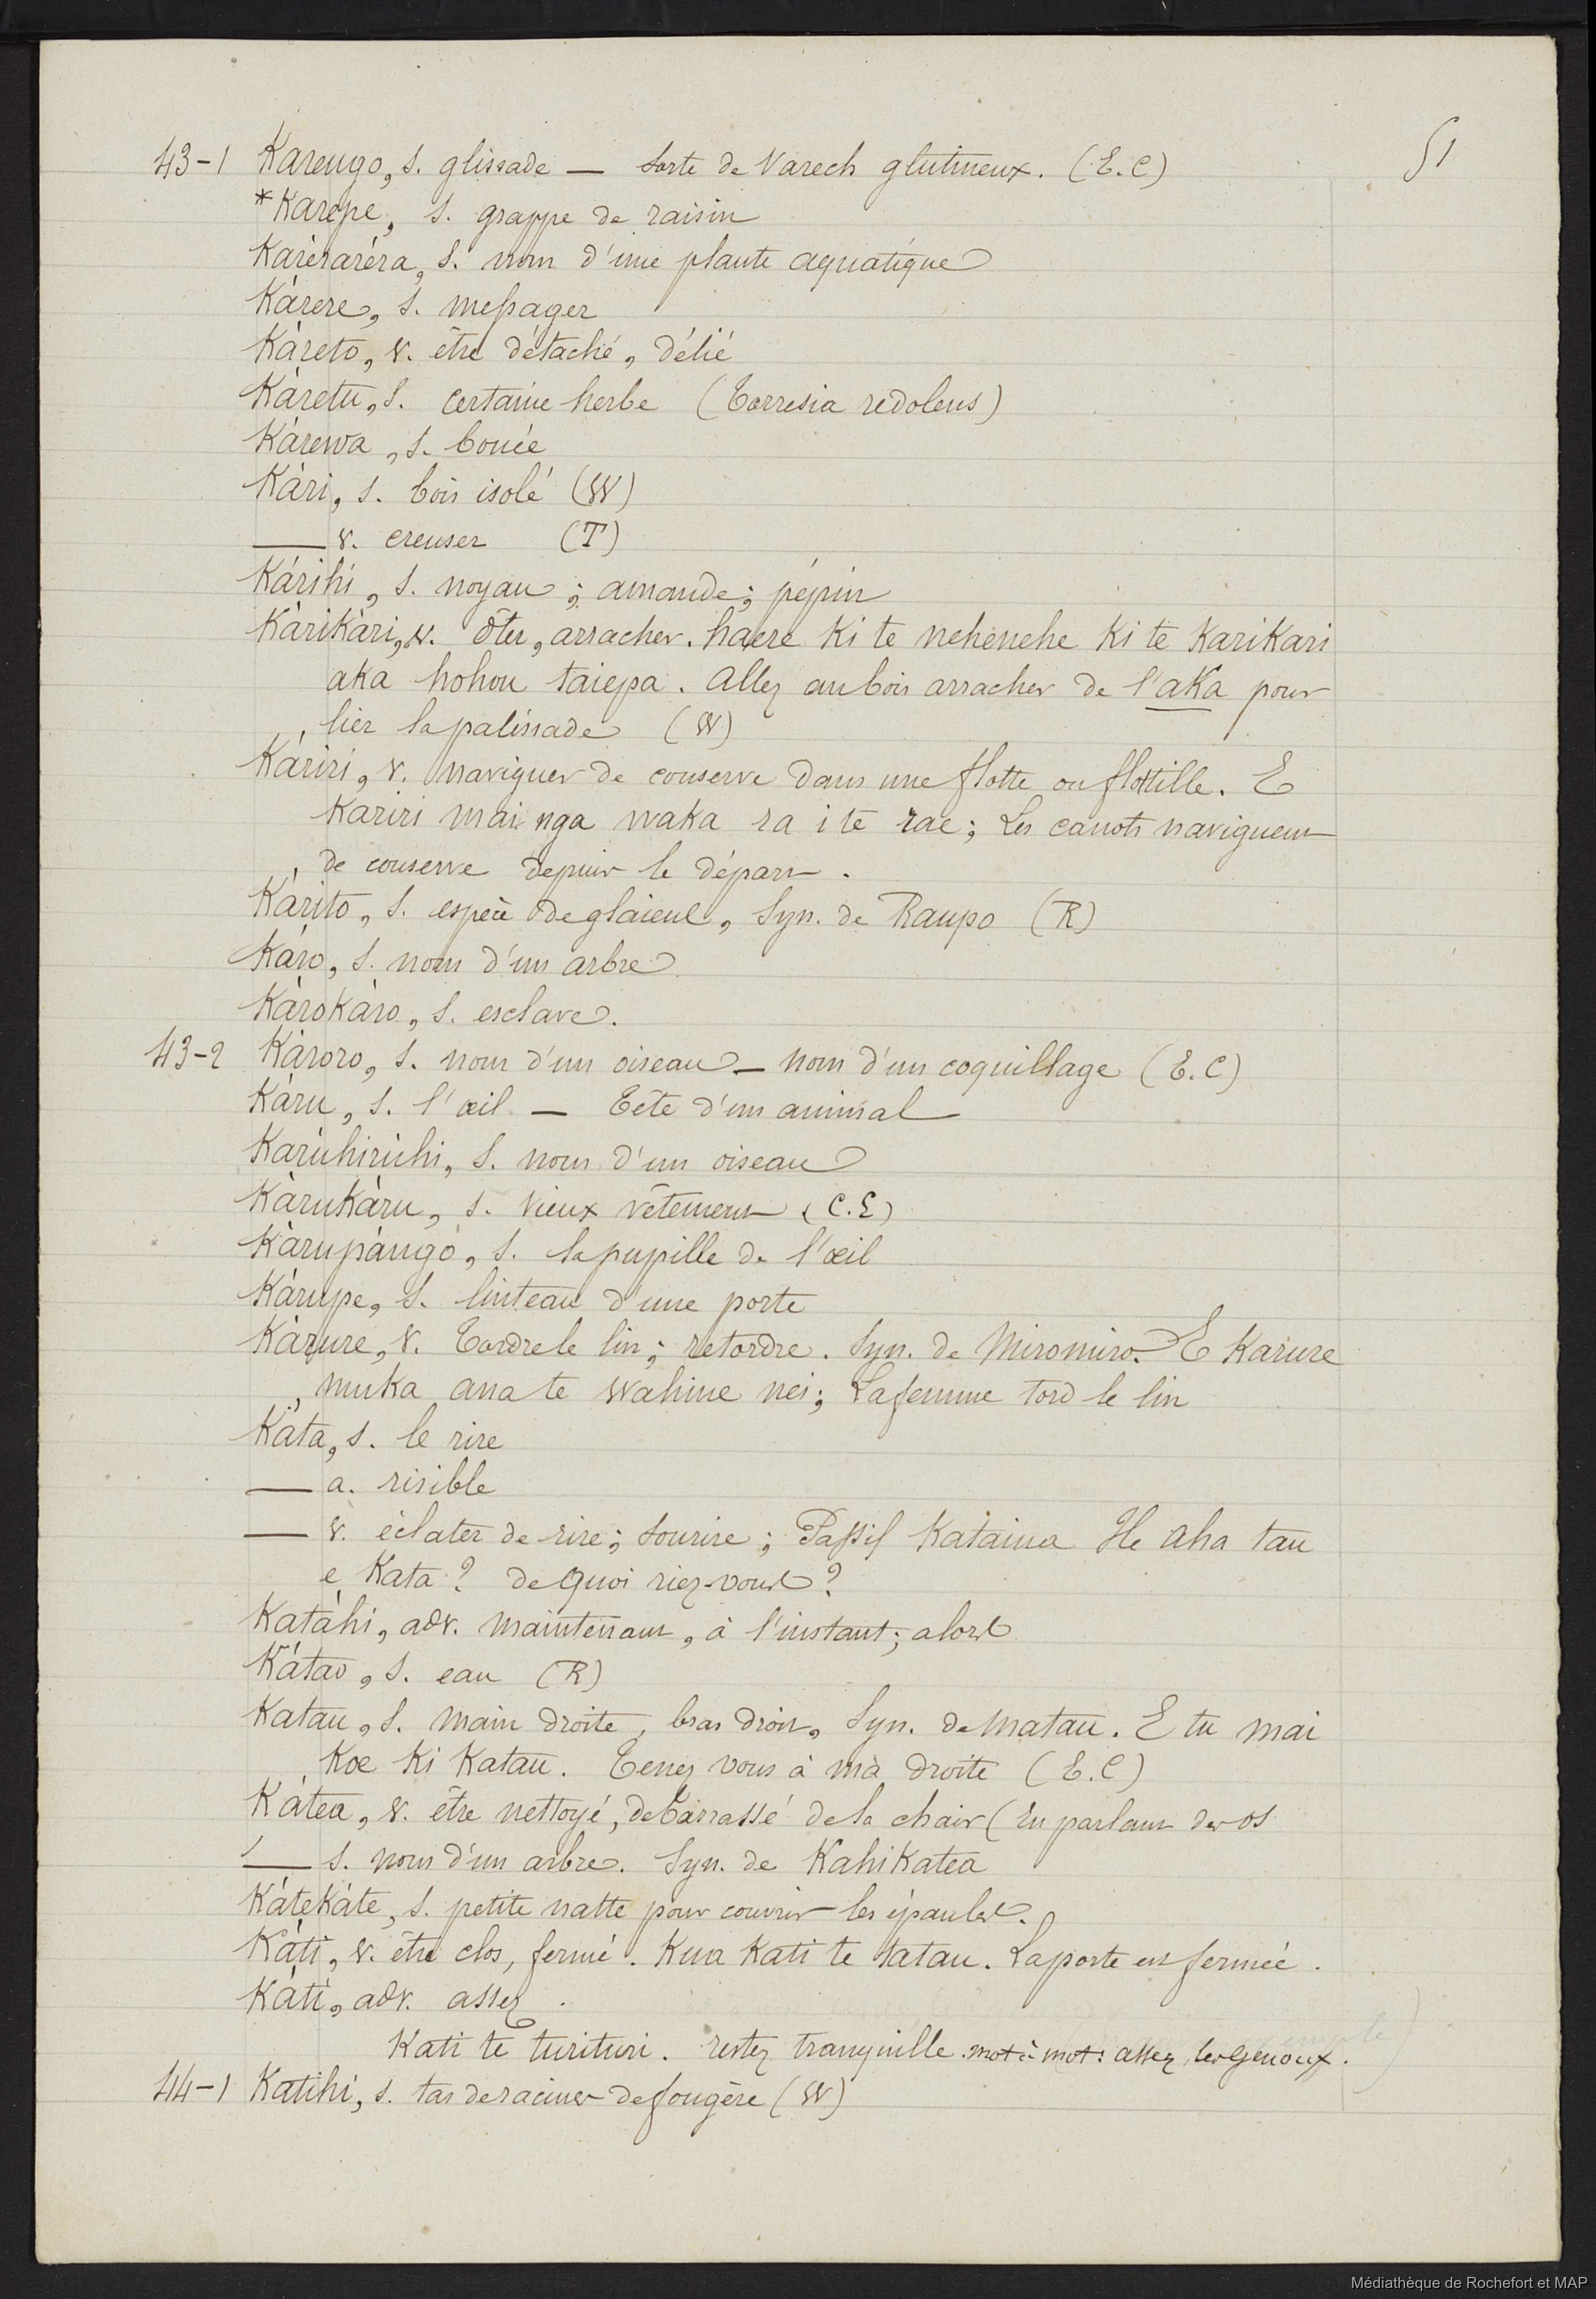 51
43-1 Karengo, s. glissade — sorte de Varech glutineux. (E.C)
*Karepe, s. grappe de raisin
Karèraréra, s. nom d'une plante aquatique
Kàrere, s. messager
Kàreto, v. être détaché, délié
Kàretu, s. certaine herbe (Torresia redolens)
Kàrewa, s. bouée
Kàri, s. bois isolé (W)
— v. creuser (T)
Kárihi, s. noyau; amande; pépin
Kàrikàri, v. ôter, arracher. haere Ki te nehenehe Ki te KariKari
aka hohou taiepa. Allez au bois arracher de l'aKa pour
lier la palissade (W)
Kàriri, v. naviguer de conserve dans une flotte ou flottille. E
Kariri mai nga waka ra i te rae; Les canots naviguent
de conserve depuis le départ.
Kàrito, s. espèce de glaieul, Syn. de Raupo (R)
Kàro, s. nom d'un arbre
KàroKàro, s. esclave.
43-2 Kàroro, s. nom d'un oiseau — nom d'un coquillage (E.C)
Kàru, s. l'œil — Tête d'un animal
Karùhirùhi, s. nom d'un oiseau
KàruKàru, s. vieux vêtement (C.E)
Kàrupàngo, s. la pupille de l'œil
Kàrupe, s. linteau d'une porte
Kàrure, v. Tordre le lin; retordre. Syn. de Miromiro. E Karure
muka ana te wahine nei; La femme tord le lin
Kàta, s. le rire
— a. risible
— v. éclater de rire; sourire; Passif Kataina He Aha tau
e Kata? de quoi riez-vous?
Katàhi, adv. maintenant, à l'instant; alors
Kátao, s. eau (R)
Katau, s. main droite, bras droit, Syn. de Matau. E tu mai
Koe Ki Katau. Tenez vous à ma droite (E.C)
Kàtea, v. être nettoyé, debarrassé de la chair (en parlant des os
— s. nom d'un arbre. Syn. de KahiKatea
KàteKàte, s. petite natte pour couvrir les épaules.
Kàti, v. être clos, fermé. Kua Kati te tatau. La porte est fermée.
Kàti, adv. assez.
Kati te turituri. restez tranquille. mot à mot: assez, les genoux.
44-1 Katihi, s. tas de racines de fougère (W)
Médiathèque de Rochefort et MAP